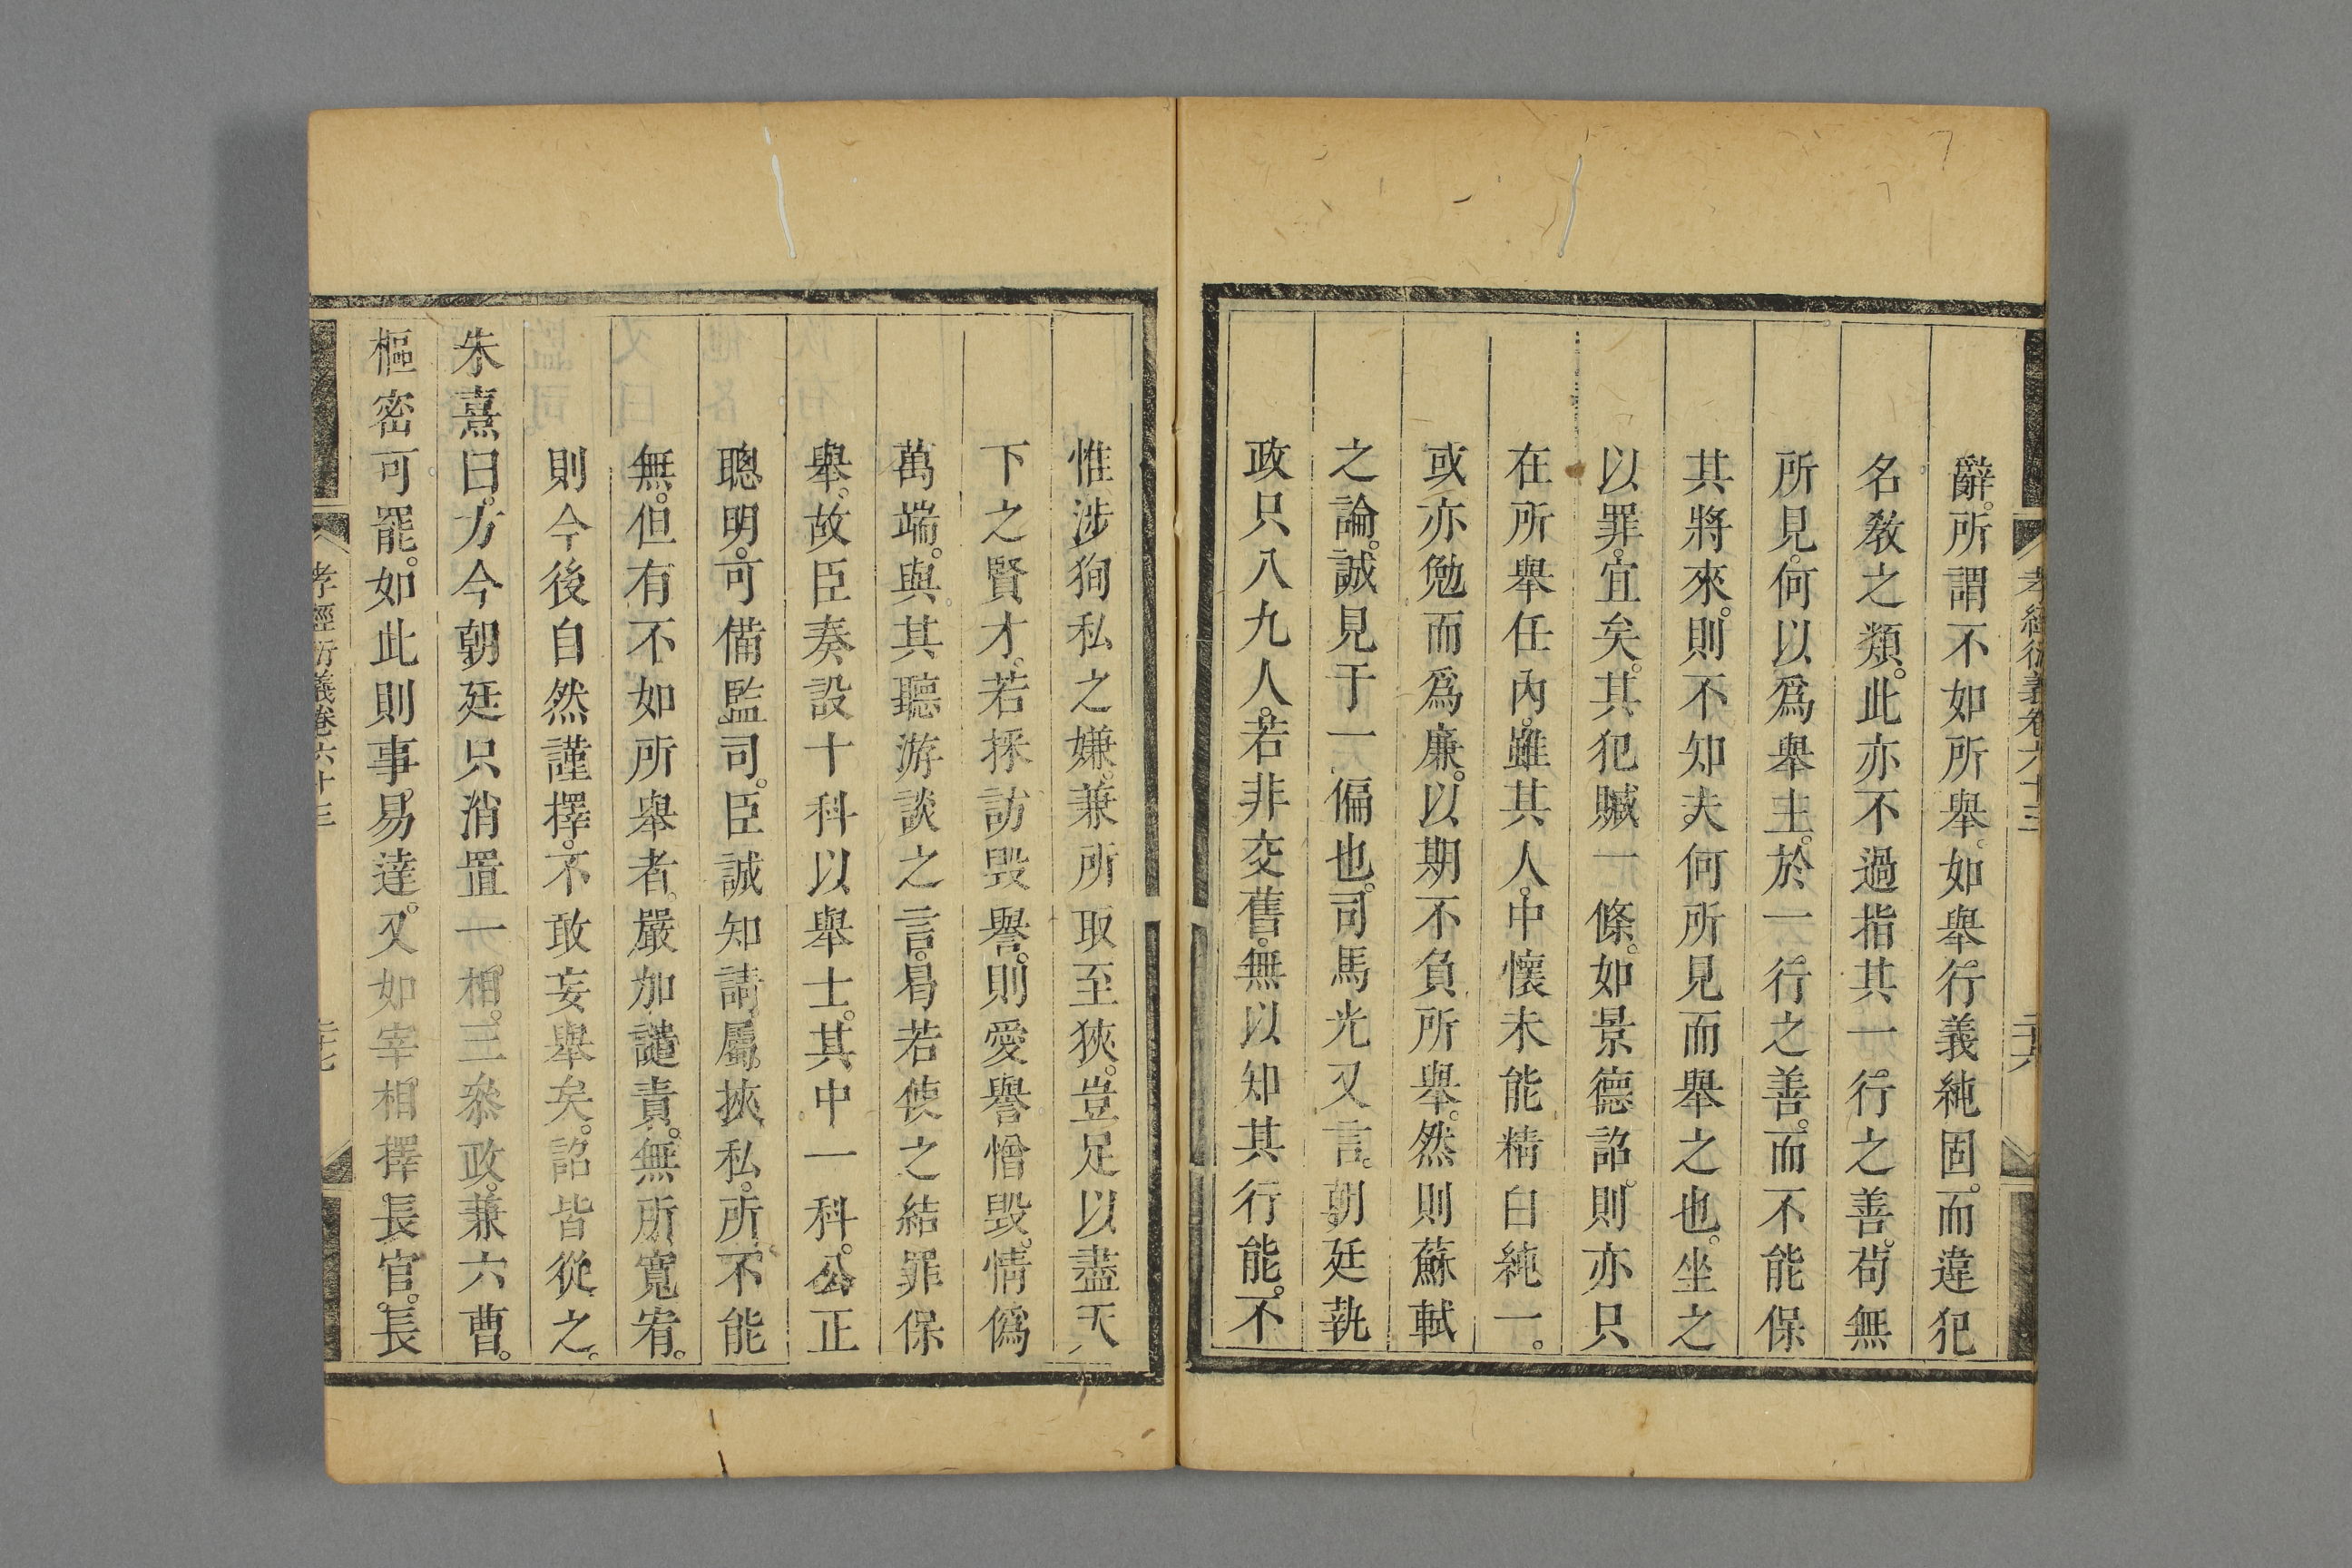 孝經衍義卷六十三
二十六
辭。所謂不如所舉。如舉行義純固。而違犯
名教之類。此亦不過指其一行之善。苟無
所見。何以爲舉主。於一行之善。而不能保
其將來。則不知夫何所見而舉之也。坐之
以罪。宜矣。其犯贓一條。如景德詔。則亦只
在所舉任內。雖其人。中懷未能精白純一。
或亦勉而爲廉。以期不負所舉。然則蘇軾
之論。誠見于一偏也。司馬光又言。朝廷執
政只八九人。若非交舊。無以知其行能。不
惟涉狥私之嫌。兼所取至狹。豈足以盡天
下之賢才。若採訪毀譽。則愛譽憎毀。情僞
萬端。與其聽游談之言。曷若使之結罪保
舉。故臣奏設十科以舉士。其中一科。公正
聰明。可備監司。臣誠知請屬挾私。所不能
無。但有不如所舉者。嚴加譴責。無所寬宥。
則今後自然謹擇。不敢妄舉矣。詔皆從之。
朱熹曰。方今朝廷只消置一相。三參政。兼六曹。
樞密可罷。如此則事易達。又如宰相擇長官。長
孝經衍義卷六十三
二十七